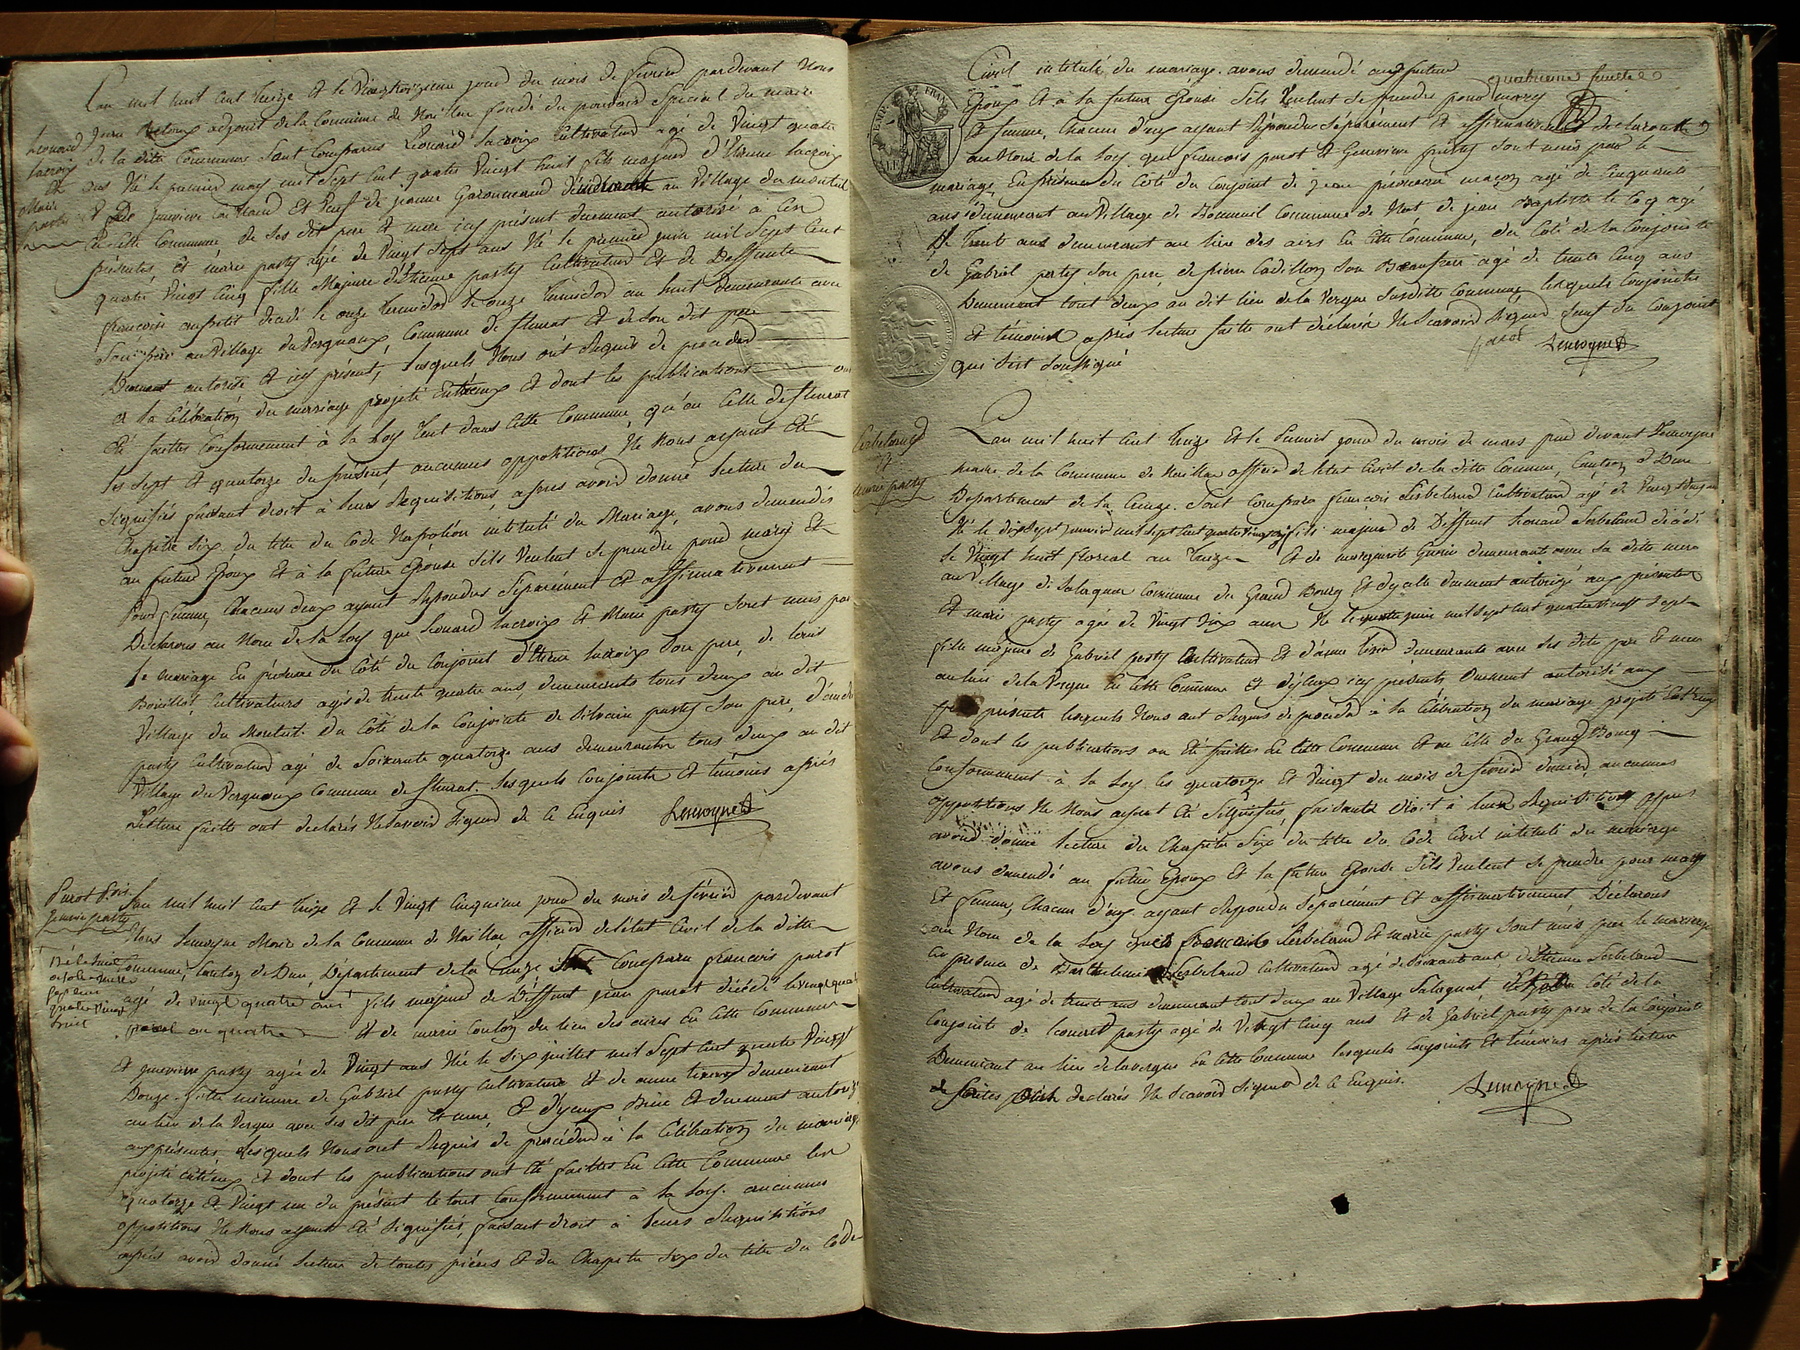 Lan mil huit cent treize et le Vingt troizieme jour du mois de fevrier pardevant Nous
jean adjoint de la Commune de Noillac fondé du pouvoir Special du maire
Leonard lacroix et Marie party
de la ditte Commune Sont Comparus Léonard lacroix Cultivateur agé de Vingt quatre
ans Né le premier may mil Sept Cent quatre Vingt huit fils majeur d'Etienne lacroix
de Genevieve et Veuf de jeanne au Village du monteil
en Cette Commune de Ses dit pere et mere icy présent duement autorisé à Ces
présentes, et marie party agé de Vingt Sept ans Né le premier juin mil Sept Cent
quatre Vingt Cinq fille Majeure d'Etienne party Cultivateur Et de Deffunte
françoise decedé le onze termidor an huit demeurante avec
Son père au Village du Vergnaux Commune de fleurat Et de Son dit pere
Duement autorisé et icy présent, lesquels Nous ont Requis de proceder
a la Célébration du mariage projeté Entreux et dont les publications ont
Eté faites Conformement à la Loy tent dans Cette Commune qu'en Celle de fleurat
les Sept et quatorze du présent, aucunes oppositions Ne Nous ayant Eté
Signifiés faisant droit à leurs Requisitions, apres avoir donné lecture du
Chapitre Six du titre du Code Napoléon intitulé du Mariage, avons demandés
au futur Epoux Et à la future Epouse Sils Veulent Se prendre pour mary Et
Pour femme, Chacuns deux ayant Répondus Séparément Et affirmativement
Declarons au Nom de la Loy que Leonard lacroix Et Marie party Sont unis par
le mariage En présence du Côté du Conjoint d'Etiene lacroix Son pere, de Louis
Bouillot Cultivateurs agés de trente quatre ans, demeurants tous deux au dit
Village du Monteil. Du Coté de la Conjointe de Silvain party Son pere,
party Cultivateur agé de Soixante quatorze ans demeurants tous deux au dit
Village du Vergnoux Commune de fleurat. lesquels Conjoints Et témoins après
Lecture faitte ont déclarés Ne Savoir Signer de Ce Enquis Lemoyne
Parot fois genevieve party
Lan mil huit Cent treize Et le Vingt Cinquieme jour du mois de février pardevant
Nous Lemoyne Maire de la Commune de Noillac officier de létat Civil de la ditte
né le huit octobre mil Sept Cent quatre Vingt huit
Commune, Canton de Dun, Département de la Creuze Sont Comparu francois parot
agé de vingt quatre ans fils majeur de Déffunt jean parot décédé le vingt quatre
an quatre Et de marie Coulon du lieu des aires En Cette Commune
Et genevieve party agée de Vingt ans Née le Six juillet mil Sept Cent quatre Vingt
Douze fille mineure de Gabriel party Cultivateur Et de anne demeurant
au lieu de la Vergne avec Ses dit pere Et mere, Et d'yceux Duement autorizé
aux présentes, lesquels Nous ont Requis de procéder à la Célébration du mariage
projeté entreux Et dont les publications ont Eté faittes En Cette Commune les
quatorze Et Vingt un du présent le tout Conformement à la Loy. aucunes
oppositions Ne Nous ayant Eté Signifiés, faisant droit à leurs Requisitions
après avoir donné lecture de toutes pièces Et du Chapitre Six du titre du Code
quatrieme feuillet
Civil intitulé du mariage. avons demandé aux future
Epoux Et à la future Epouse Sils Veulent Se prendre pour mary
Et femme, Chacun deux ayant Répondu Séparément Et affirmativement declarons
au Nom de la Loy que francois parot Et Genevieve party Sont unis par le
mariage, En présence du Coté du Conjoint de jean maçon agé de Cinquante
ans demeurant au Village de Commune de de jean Baptiste le Coq agé
de trente ans demeurant au lieu des aires En Cette Commune, du Coté de la Conjointe
de Gabriel party Son pere de pierre Cadillon Son Beaufrere agé de trente Cinq ans
Demeurant tout deux au dit lieu de la Vergne Susditte Commune lesquels Conjoints
et témoins après lecture faitte ont déclarés Ne Scavoir Signer Sauf du Conjoint
qui S'est Soussigné
parot Lemoyne
et marie party
Lan mil huit Cent treize Et le premier jour du mois de mars par devant Lemoyne
maire de la Commune de Noillac officier de létat Civil de la ditte Commune, Canton d Dun
Departement de la Creuze. Sont Comparu francois Lerbeland Cultivateur agé de
Né le dix Sept janvier mil Sept Cent quatre fils majeur de Déffunt Léonard Lerbeland dédé
le Vingt huit floreal an treize Et de marguerite demeurant avec Sa ditte mere
au Village de Salagnac Commune du Grand Bourg Et d'ycelle duement autorizé aux présentes
Et marie party agée de Vingt Six ans Né le quatre juin mil Sept Cent quatre Vingt Sept
fille majeure de Gabriel party Cultivateur Et d'anne demeurante avec Ses dits pere Et mere
au lieu de la Vergne En Cette Commune Et d'yceux icy présents Duement autorisé aux
presente lesquels Nous ont Requis de proceder à la Célébration du mariage projeté Entreux
Et dont les publications on Eté faittes En Cette Commune Et en Celle du Grand Bourg
Conformement à la Loy les quatorze Et Vingt du mois de février dernier, aucunes
oppositions Ne Nous ayant Eté Signifiés, faisante droit à leurs Requisitions apres
avoir donné lecture du Chapitre Six du titre du Code Civil intitulé du mariage
avons demandé au futur Epoux Et la future Epouse Sils Veulent Se prendre pour mary
Et femme, Chacun d'eux ayant Répondu Séparément Et affirmativement Déclarons
au Nom de la Loy que francois Lerbeland Et marie party Sont unis par le mariage
En présence de Barthelemie Lerbeland Cultivateur agé de Soixante ans d'Etienne Lerbeland
Cultivateur agé de trente ans demeurant tou deux au Village Salagnat Et du Coté de la
Conjointe de Leonard party agé de Vingt Cinq ans Et de Gabriel party pere de la Conjointe
Demeurant au lieu de lavergne En Cette Commune lesquels Conjoints Et témoins après lecture
faites declarés Ne Scavoir Signer de Ce Enquis. Lemoyne